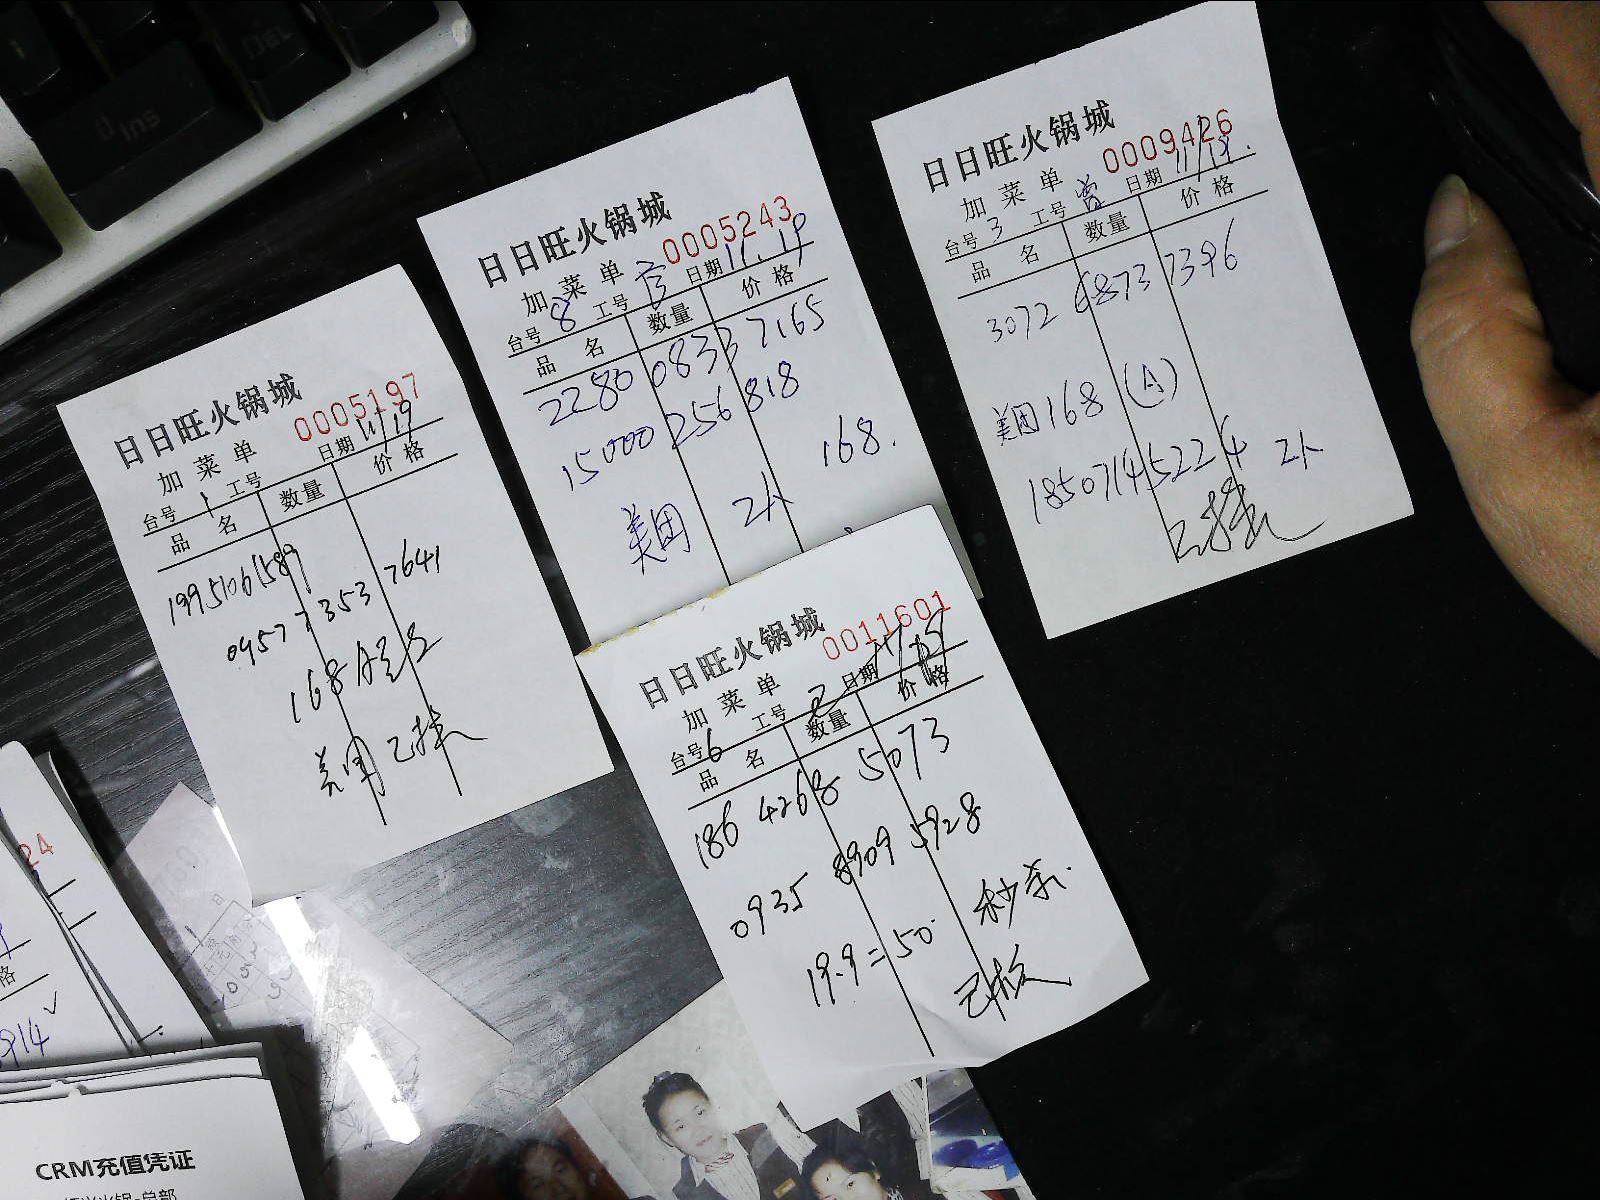 日日旺火锅城
0005197
加菜单
台号 1 工号 日期 11/19
品名 数量 价格
19951061589
0957 7353 7641
168 A
美团 已接
日日旺火锅城
0005243
加菜单
台号 8 工号 日期 11.19
品名 数量 价格
2280 0833 7165
15000 256 818
168.
美团 2人
日日旺火锅城
0009426
加菜单
台号 3 工号 曾 日期 11/19.
品名 数量 价格
3072 6873 7396
美团168 (A)
18507145224 2人
已接
日日旺火锅城
0011601
加菜单
台号 6 工号 日期 11/19
品名 数量 价格
186 4268 5073
0935 8909 5928
19.9=50 秒杀.
已核
24
格
914
CRM充值凭证
Ins
DEL